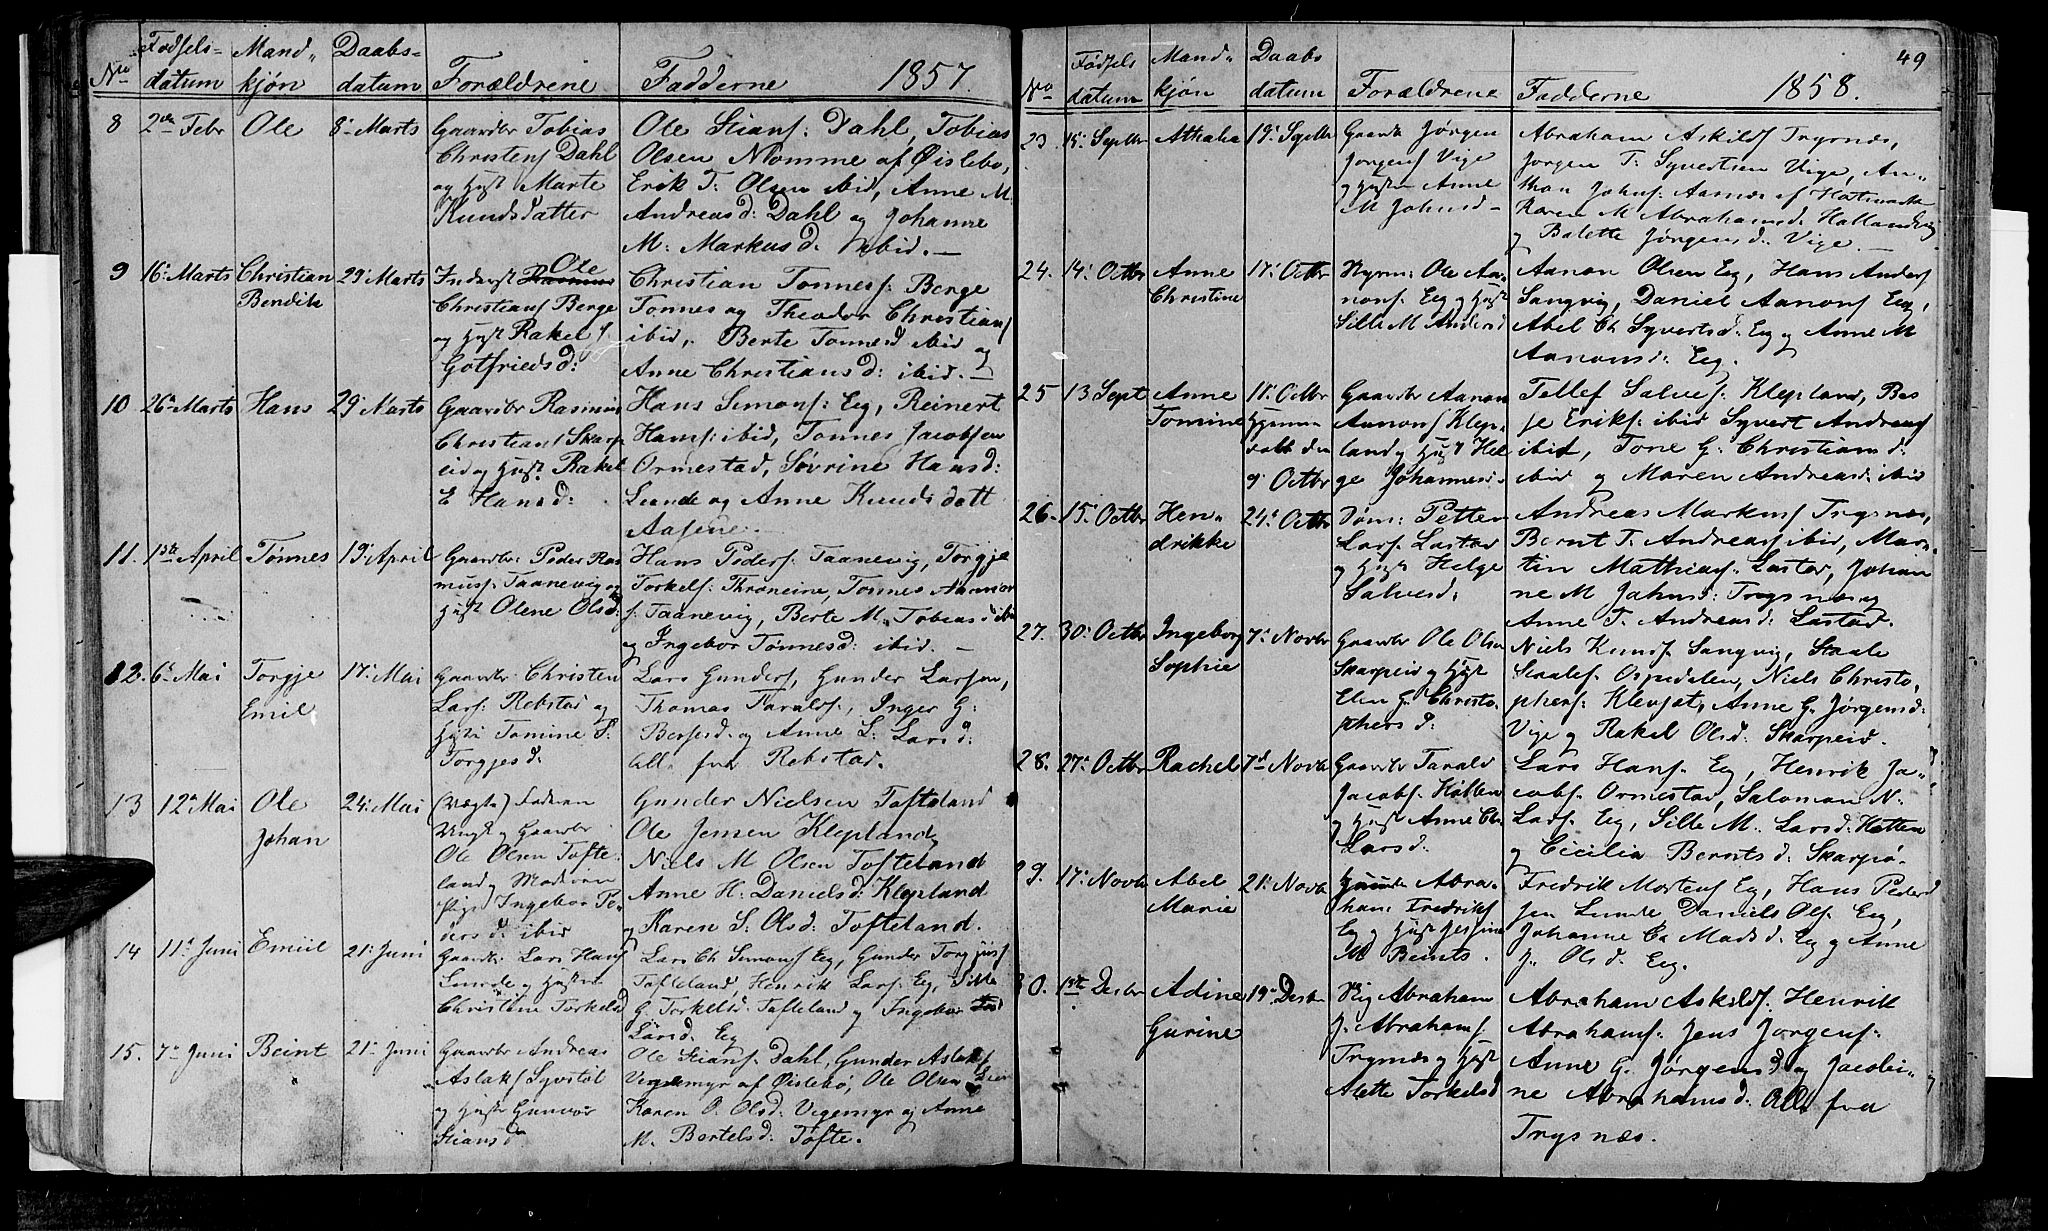 No Fødsels-datum Mandkjøn Daabs-datum Forældrene Fadderne 1857.
8 2den Febr Ole 8de Marts Gaardbr Tobias
Christens Dahl
og Hust Marte
Knudsdatter
Ole Stians: Dahl, Tobias
Olsen Nomme af Øislebø,
Erik T. Olsen ibid, Anne M.
Andreasd: Dahl og Johanne
M. Markusd. ibid. —
9 16. Marts Christian
Bendik 29. Marts Inderst Ole
Christians Berge
og Hust Rakel
Gotfriedsd:
Christian Tonnes: Berge
Tonnes og Theodor Christians
ibid, Berte Tonnesd ibid og
Anne Christiansd: ibid. —
10 26. Marts Hans 29. Marts Gaardbr Rasmus
Christians Skarp
eid og Hust. Rakel
E Hansd:
Hans Simons: Eg, Reinert
Hans: ibid, Tonnes Jacobsen
Ormestad, Søvrine Hansd:
Lunde og Anne Knudsdatt
Aasene.
11. 1ste April Tønnes 19. April Gaardbr. Peder Ras
mus: Taanevig og
Hust Olene Olsd:
Hans Peders: Taanevig, Torgje
Torkels: Throneine, Tonnes
Taanevig, Berte M. Tobiasd ibid
og Ingebor Tonnesd: ibid. —
12. 6. Mai Torgje
Emil 17. Mai Gaardbr. Christen
Lars: Rebstad og
Hust Tomine S.
Torgjesd.
Lars Gunders, Gunder Larsen,
Thomas Taralds:, Inger G.
Berjesd. og Anne L. Larsd:
Alle fra Rebstad.
13 12. Mai Ole
Johan 24. Mai (Uægte) Faderen
Ungk og Gaardbr
Ole Olsen Tofte
land og Moderen
Pige Ingebor Pe-
dersd: ibid
Gunder Nielsen Tofteland
Ole Jensen Klepland
Niels M Olsen Tofteland
Anne H. Danielsd: Klepland
og Karen S. Olsd: Tofteland.
14 11. Juni Emiil 21. Juni Gaardbr. Lars Hans
Lunde og Hustru
Christine Torkelsd
Lars Ch Simons Eg, Gunder Torgjus
Tofteland, Henrik Lars: Eg, Sille
G. Torkelsd: Tofteland og Ingebor
Larsd: Eg
15. 7. Juni Beint 21. Juni Gaardbr Andreas
Aslaks Syvstøl
og Hust Gunvor
Stiansd
Ole Stians: Dahl, Gunder Aslaks
Vegemyr af Øislebø, Ole Olsen
Karen O. Olsd: Vegemyr og Anne
M. Bertelsd: Tofte.
49
No Fødsels datum Mandkjøn Daabs datum Forældrene Fadderne 1858.
23 15. Septbr Athalia 19. Septbr Gaardb Jørgen
Jørgens Vige
og Hustr Anne
M Johnsd —
Abraham Askilds Trysnæs,
Jørgen T. Syvertsen Vige, An-
thon Johns: Aasnæs af
Karen M Abrahamsd: Hallandvig
og Balette Jørgensd: Vige. —
24. 14. Octbr Anne
Christine 17. Octbr Ole Aa-
nons: Eeg og Hust
Sille M Andersd
Aanon Olsen Eeg, Hans Anders
Sangvig, Daniel Aanons Eeg,
Abel Ch Syvertsd: Eeg og Anne M
Aanonsd: Eeg.
25 13 Sept Anne
Tomine Octbr
Hjemme
døbt den
9 Octbr Gaardbr Aanon
Aanons Klep-
land og Hust Hel
ge Johannesd.
Tellef Salves: Klepland, Bes
se Eriks: ibid Syvert Andreas
ibid, Tone G. Christiansd:
ibid og Maren Andreasd: ibid
26. 15. Octbr Hen-
drikke 24. Octbr Petter
Lars: Lastad
og Hust Helge
Salvesd:
Andreas Markus Trysnæs,
Bernt T. Andreas ibid, Mar-
tin Mathias: Lastad, Johan
ne M Johnsd: Trysnæs og
Anne T. Andreasd: Lastad.
27. 30. Octbr Ingeborg
Sophie 7. Novbr Gaardbr Ole Olsen
Skarpeid og Hust
Elen G. Christo-
phersd:
Niels Knuds Sangvig, Staale
Staales: Ospedalen, Niels Christo-
phers: Klepset, Anne G. Jørgensd:
Vige og Rakel Olsd: Skarpeid.
28. 27. Octbr Rachel 7de Novbr Gaardbr Tarald
Jacobs: Høllen
og Hust Anne Ch.
Larsd:
Lars Hans: Eeg, Henrik Ja-
cobs: Ormestad, Salomon N.
Lars: Eeg, Sille M. Larsd: Høllen
og Cicilia Berntsd: Skarpø.
29. 17. Novbr Abel
Marie 21. Novbr Abra-
ham Fredriks
Eg og Hust Jessine
M Beints.
Fredrik Mortens Eg, Hans Peder
sen Lunde, Daniels Ols: Eeg,
Johanne Ca Madsd: Eg og Anne
J. Olsd: Eeg.
30. 1ste Decbr Adine
Gurine 19. Decbr Abraham
J. Abrahams:
Trysnæs og Hust
Alette Torkelsd
Abraham Askilds: Henrik
Abrahams: Jens Jørgens:
Anne G. Jørgensd og Jacobi-
ne Abrahamsd: Alle fra
Trysnæs.